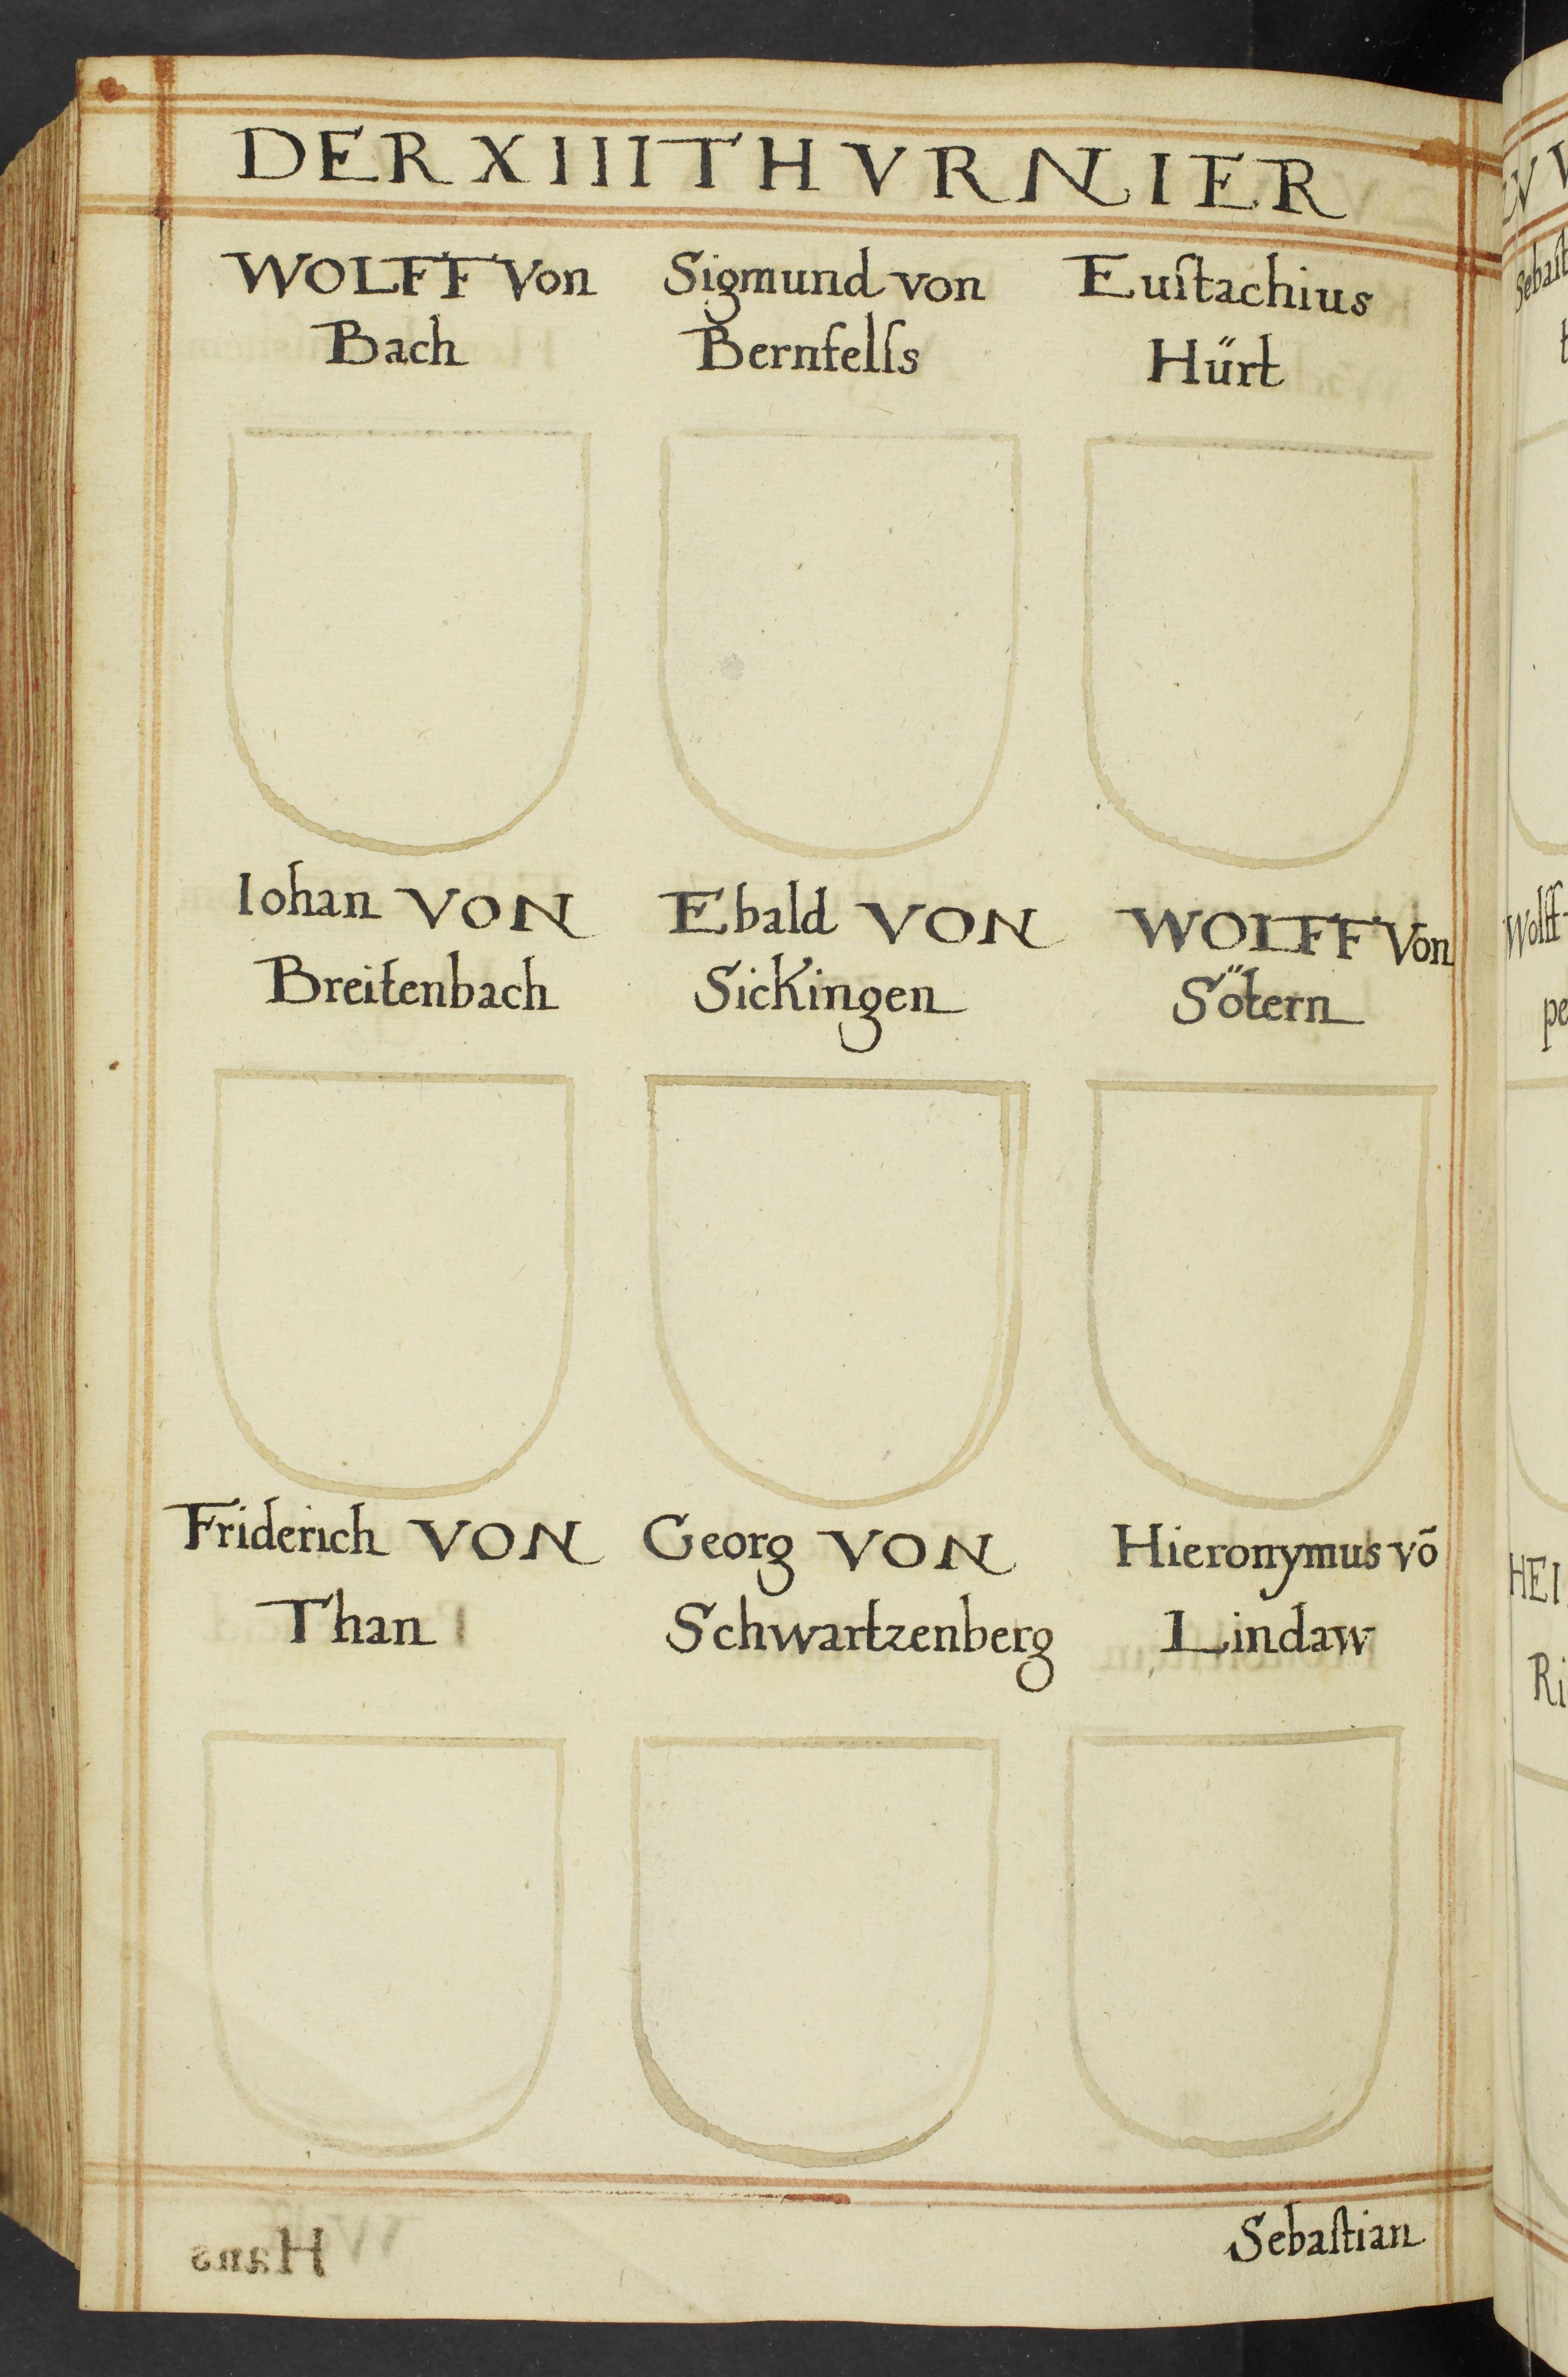 DER XIIII THVRNIER
WOLFF Von
Bach
Sigmund von
Bernfelſs
Euſtachius
Hürt
Iohan VON
Breitenbach
Ebald VON
SicKingen
WOLFF Von
Sötern
Friderich VON
Than
Georg VON
Schwartzenberg
Hieronymus võ
Lindaw
Sebaſtian
Hans